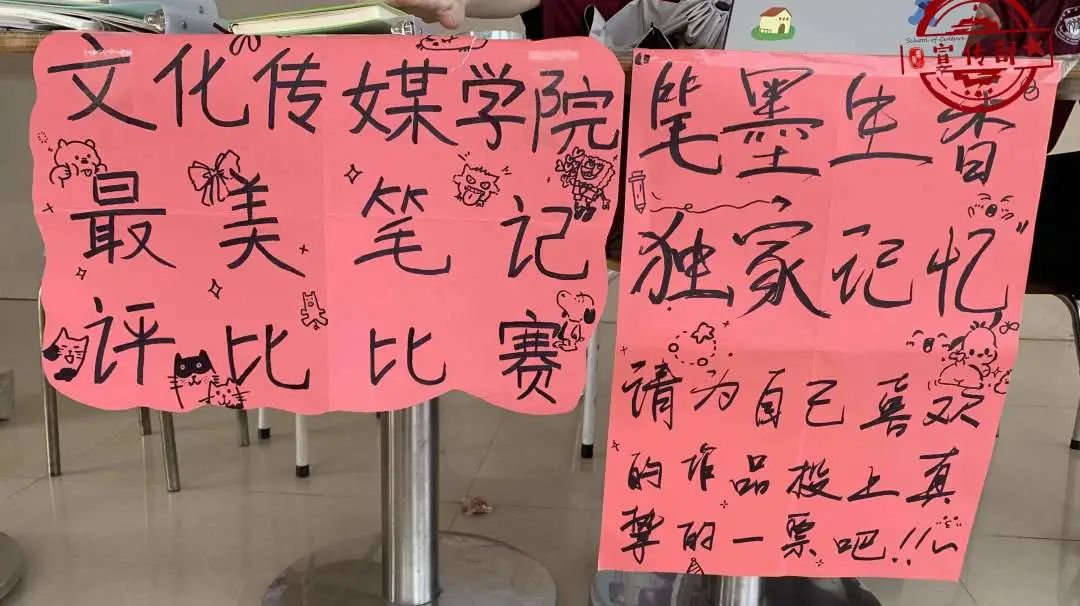 文化传媒学院
最美笔记
评比比赛
笔墨生香
独家记忆
请为自己喜欢
的作品投上真
挚的一票吧!!~
School of Culture
宣传部